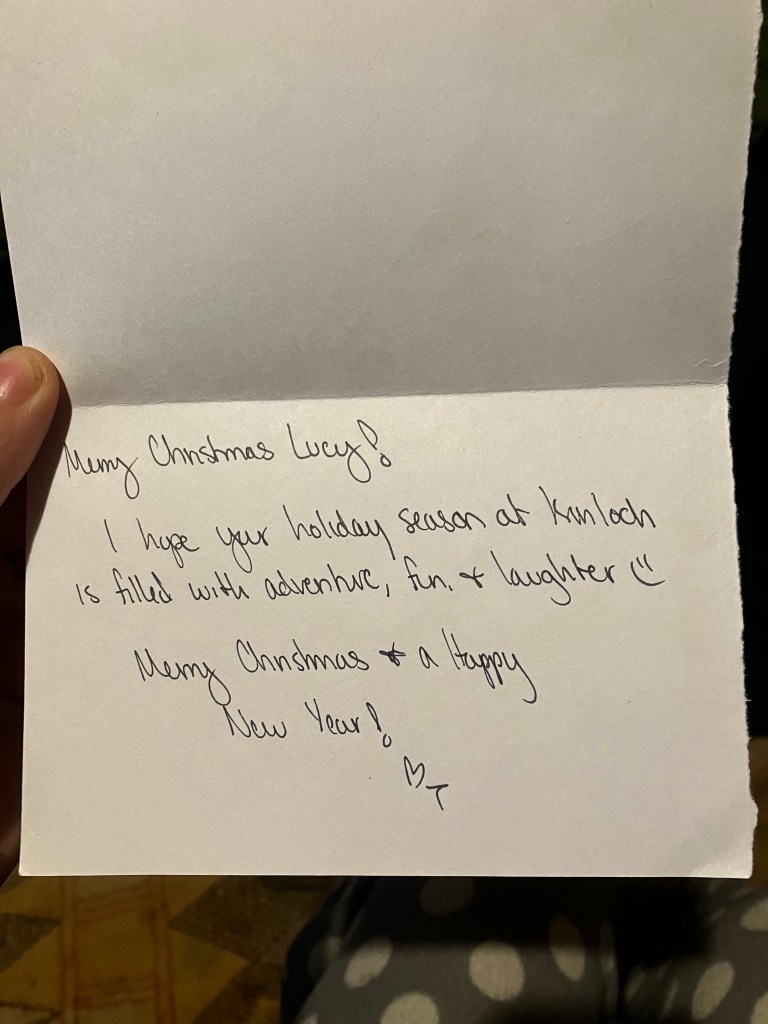 Merry Christmas Lucy!
I hope your holiday season at Kinloch
is filled with adventure, fun, + laughter :)
Merry Christmas + a Happy
New Year!
♡T